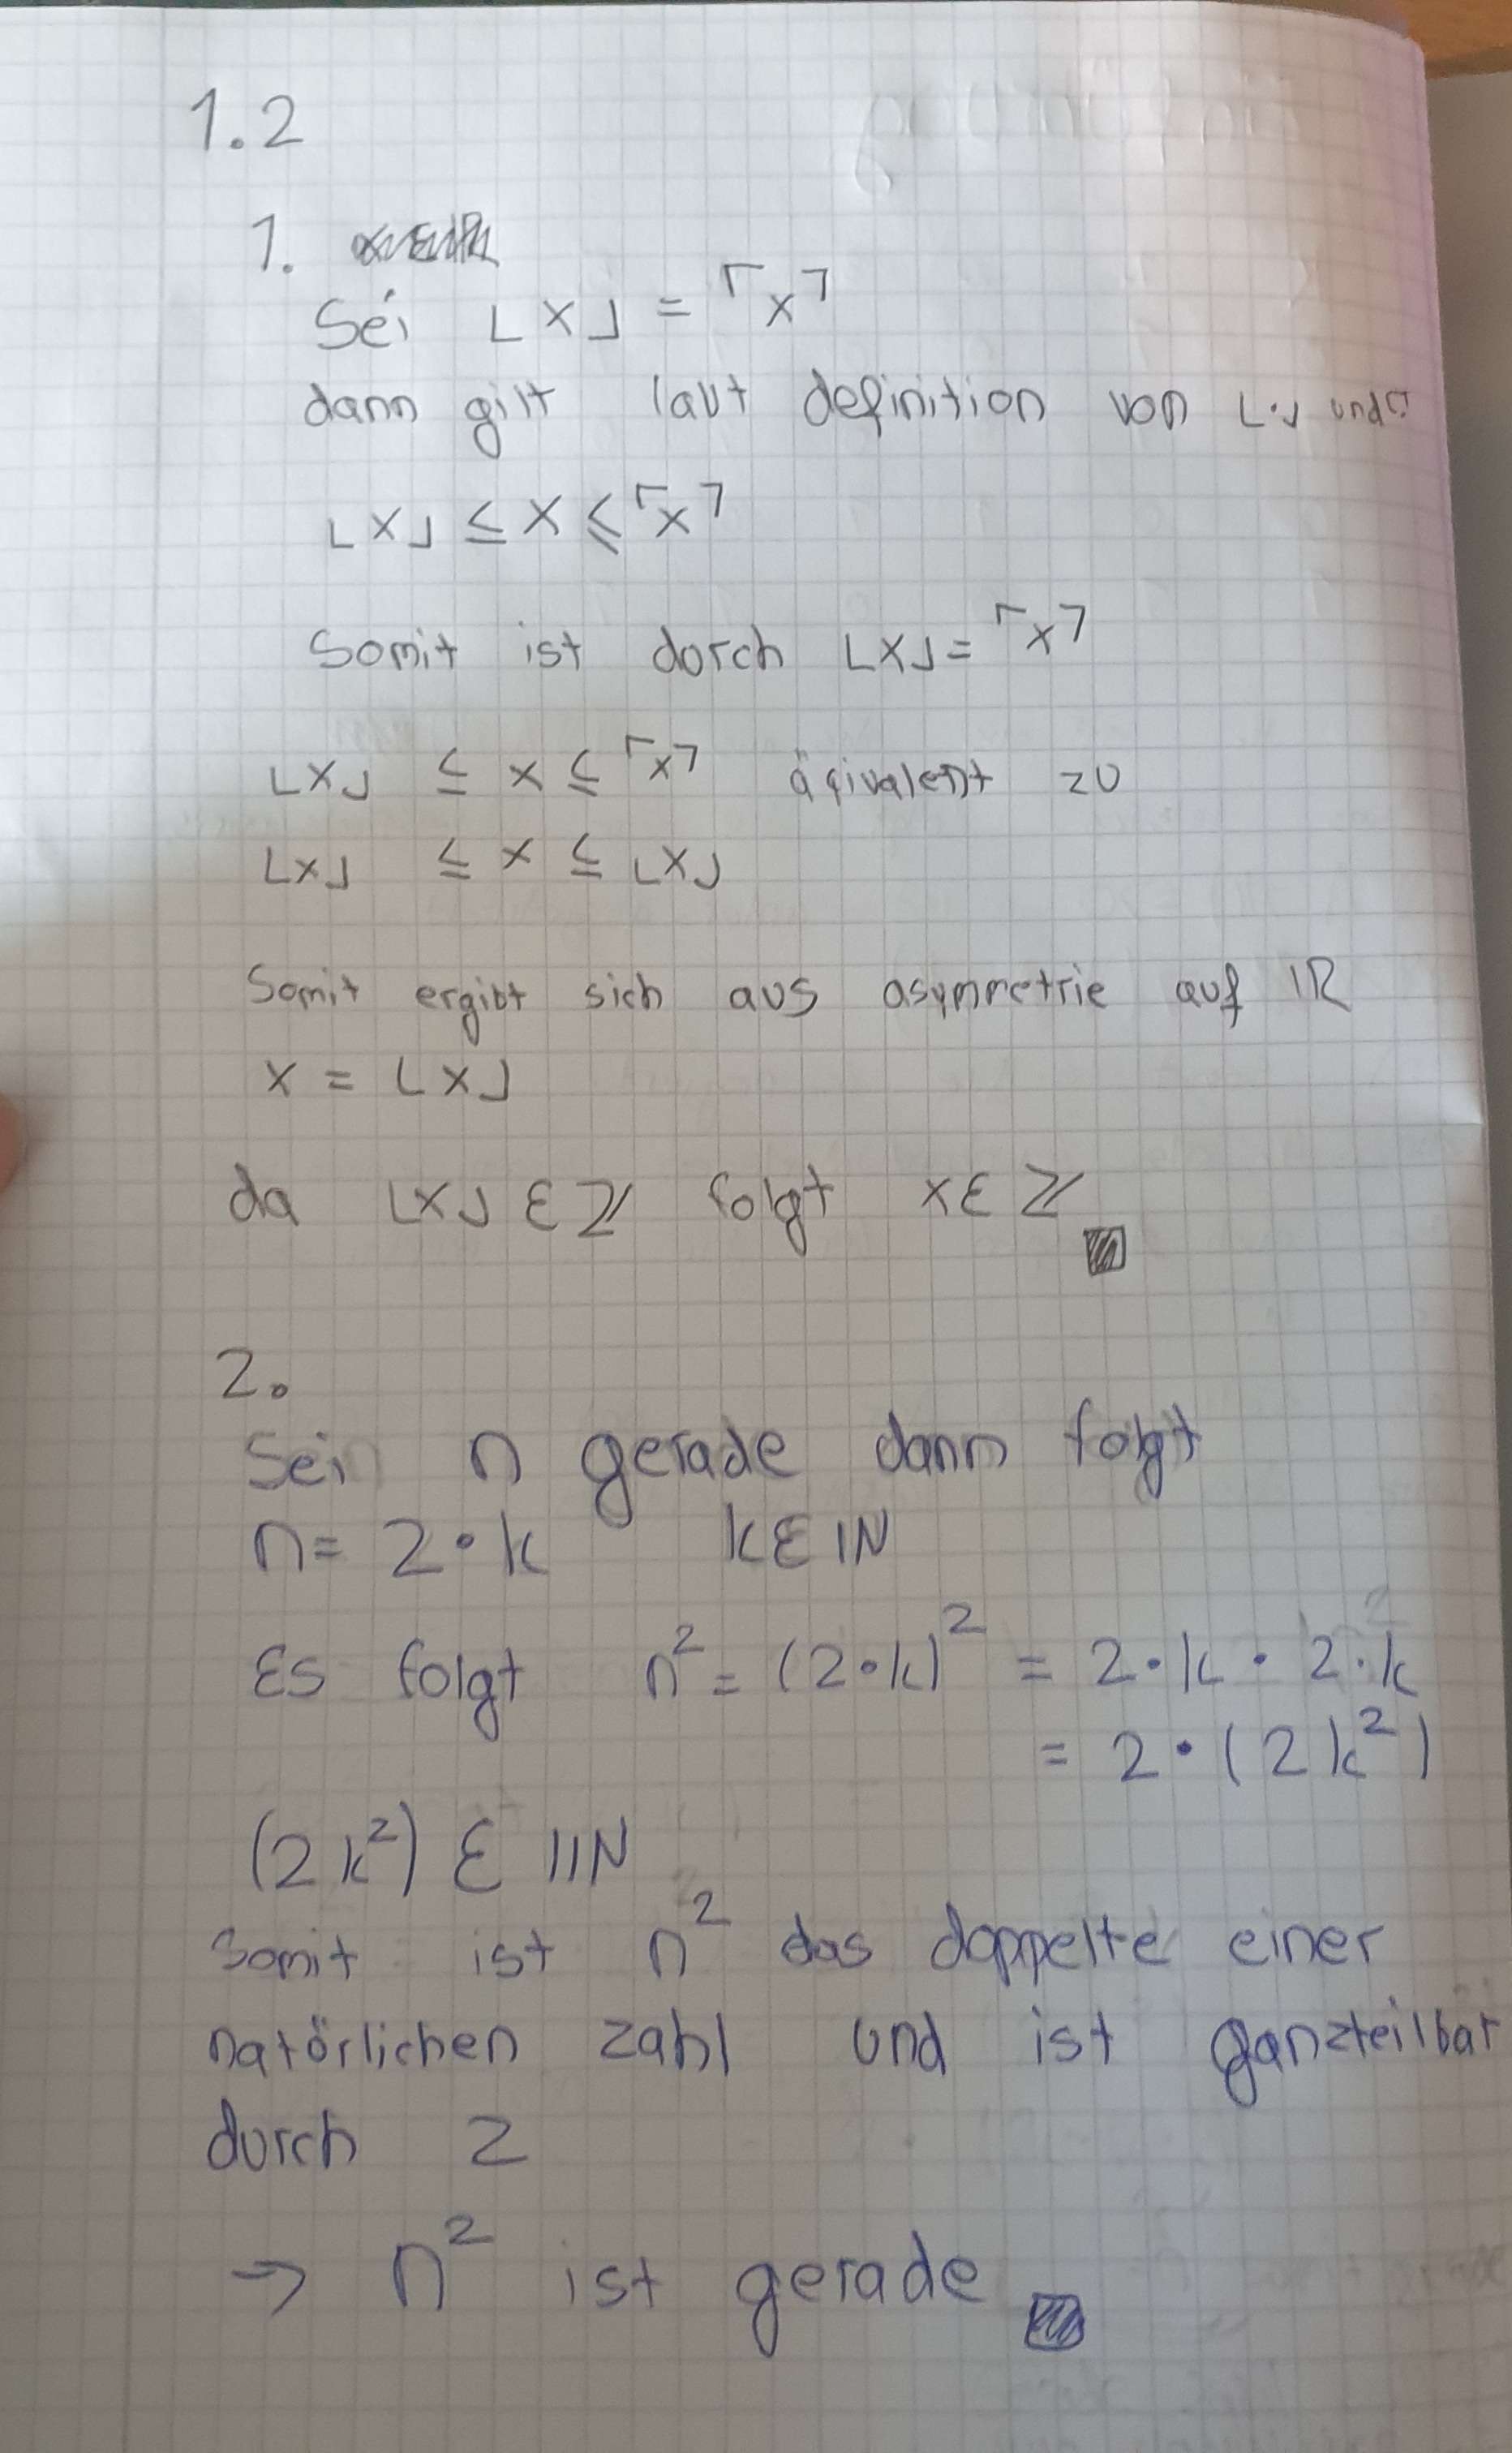 1.2
1.
Sei ⌊x⌋ = ⌈x⌉
dann gilt laut definition von ⌊·⌋ und
⌊x⌋ ≤ x ≤ ⌈x⌉
Somit ist durch ⌊x⌋ = ⌈x⌉
⌊x⌋ ≤ x ≤ ⌈x⌉ äqivalent zu
⌊x⌋ ≤ x ≤ ⌊x⌋
Somit ergibt sich aus asymmetrie auf ℝ
x = ⌊x⌋
da ⌊x⌋ ∈ ℤ folgt x ∈ ℤ
2.
Sei n gerade dann folgt
n = 2 · k k ∈ ℕ
Es folgt n² = (2·k)² = 2·k · 2·k
= 2 · (2k²)
(2k²) ∈ ℕ
Somit ist n² das doppelte einer
natürlichen zahl und ist ganzteilbar
durch 2
→ n² ist gerade